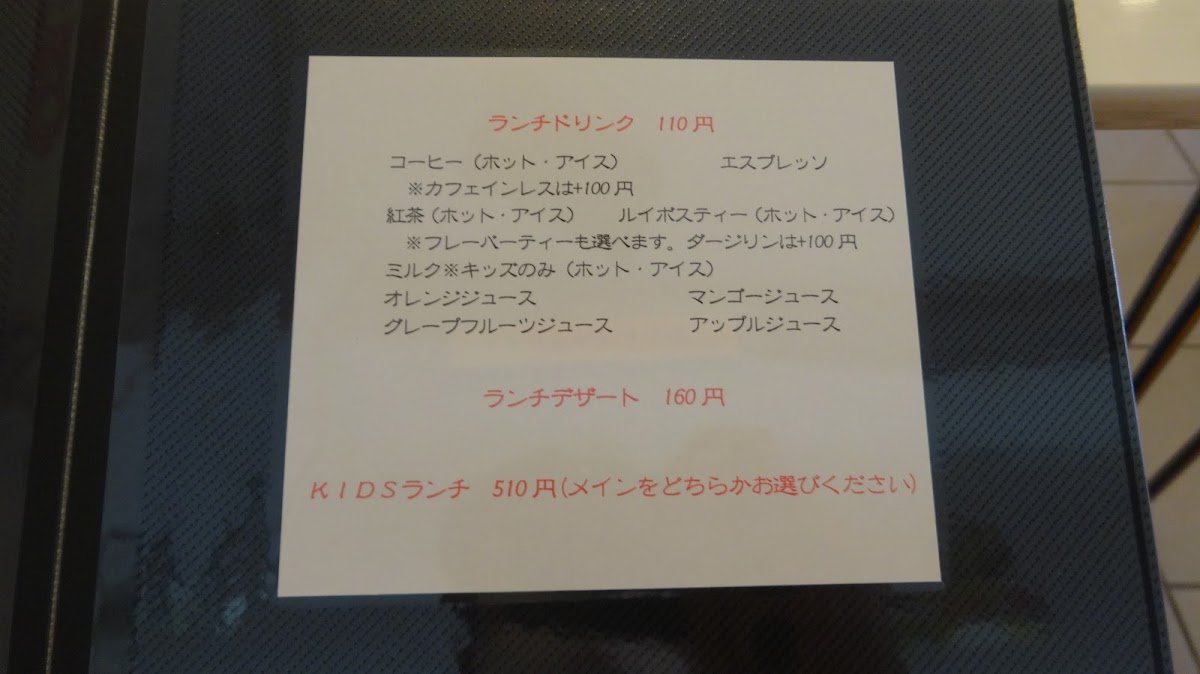 ランチドリンク 110円
コーヒー（ホット・アイス） エスプレッソ
※カフェインレスは+100円
紅茶（ホット・アイス） ルイボスティー（ホット・アイス）
※フレーバーティーも選べます。ダージリンは+100円
ミルク※キッズのみ（ホット・アイス）
オレンジジュース マンゴージュース
グレープフルーツジュース アップルジュース
ランチデザート 160円
ＫＩＤＳランチ 510円（メインをどちらかお選びください）